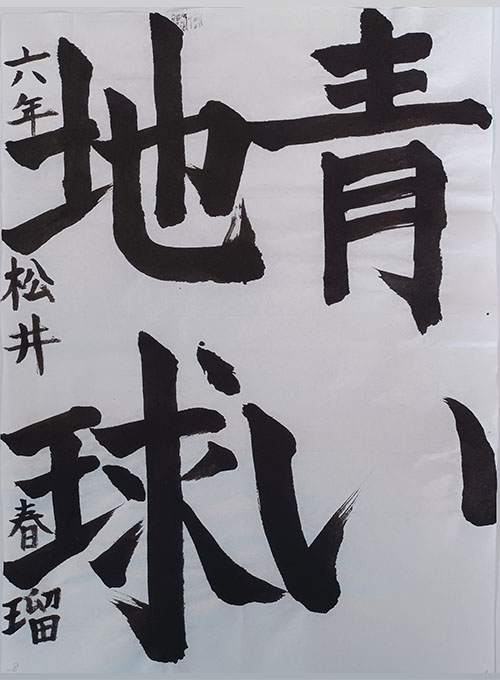 青い
地球
六年 松井 春瑠